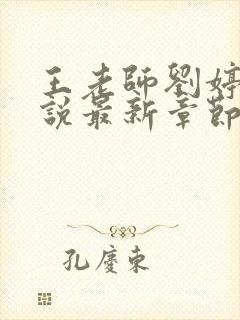 王老師劉婷
說最新章節
孔慶東